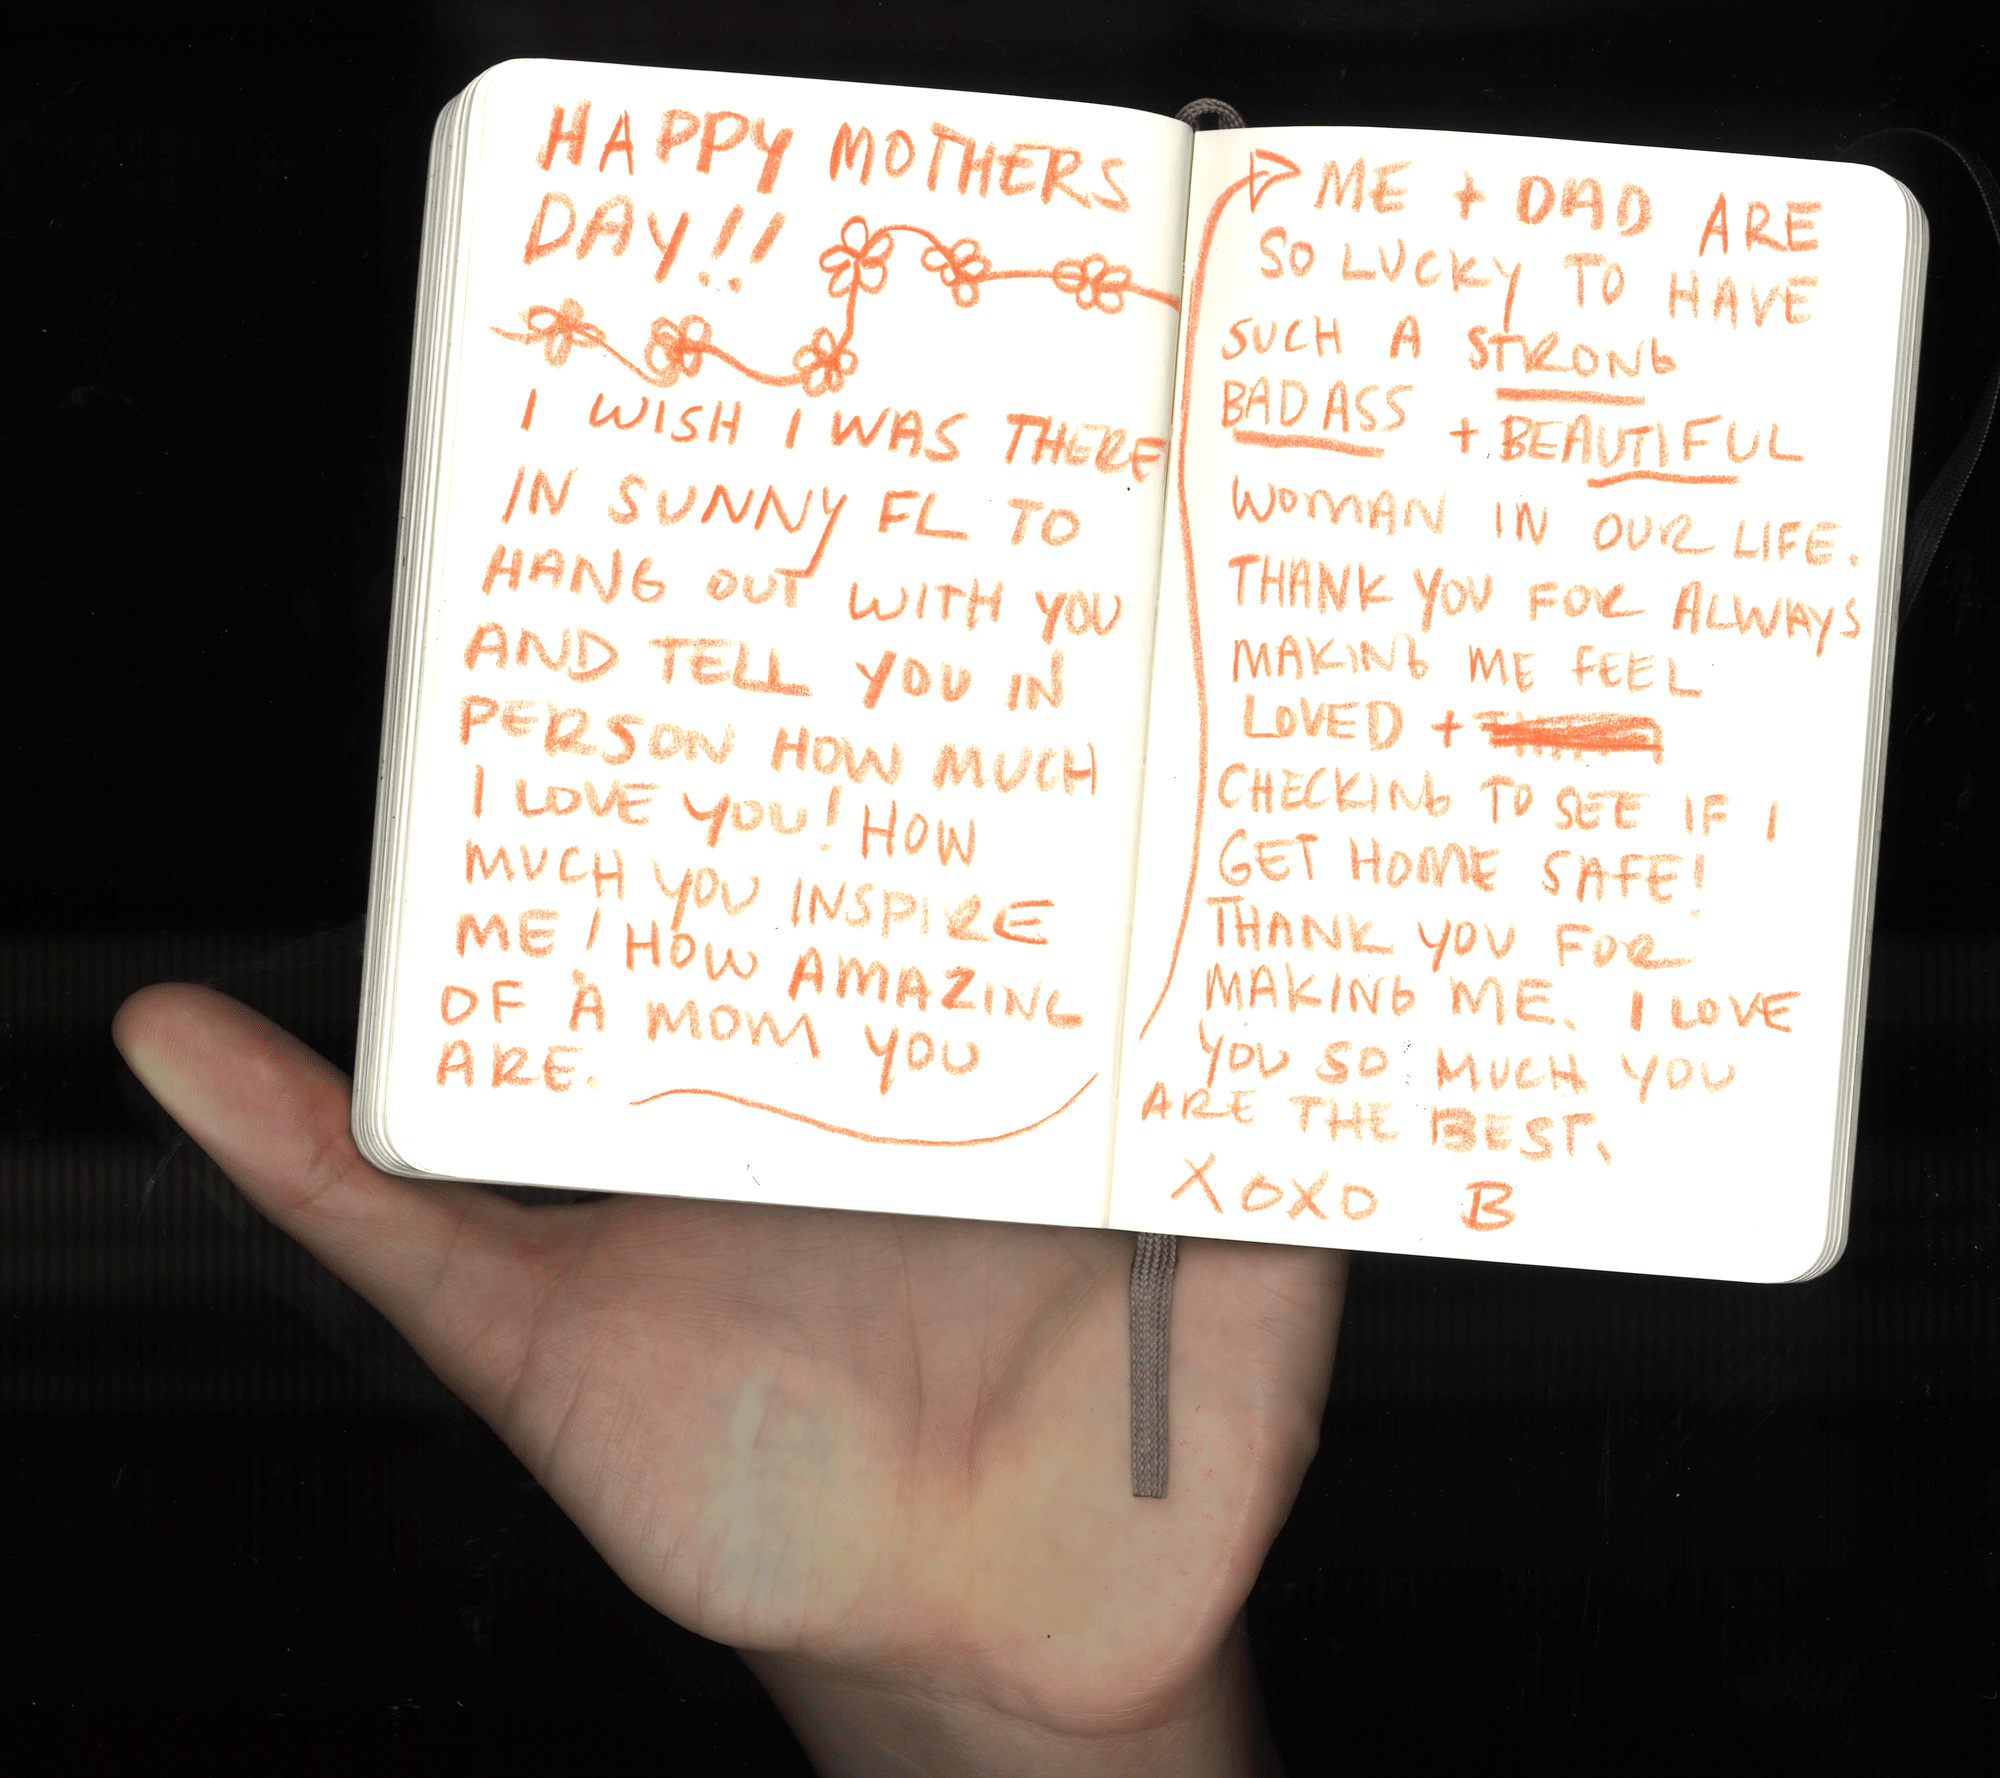 HAPPY MOTHERS
DAY!!
I WISH I WAS THERE
IN SUNNY FL TO
HANG OUT WITH YOU
AND TELL YOU IN
PERSON HOW MUCH
I LOVE YOU! HOW
MUCH YOU INSPIRE
ME! HOW AMAZING
OF A MOM YOU
ARE.
ME + DAD ARE
SO LUCKY TO HAVE
SUCH A STRONG
BADASS + BEAUTIFUL
WOMAN IN OUR LIFE.
THANK YOU FOR ALWAYS
MAKING ME FEEL
LOVED +
CHECKING TO SEE IF I
GET HOME SAFE!
THANK YOU FOR
MAKING ME. I LOVE
YOU SO MUCH YOU
ARE THE BEST.
XOXO B